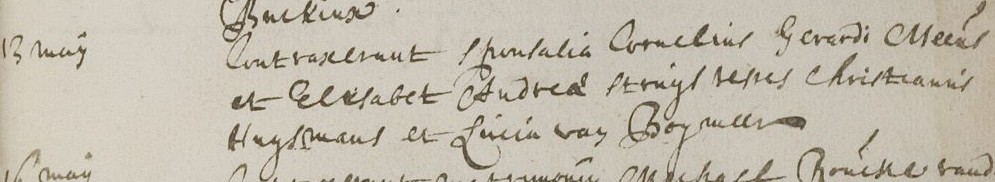 Buckinx.
13 maij Contraxerunt sponsalia Cornelius Gerardi Meeus
et Elisabet Andreae Struijs testes Christianus
Huijsmans et Lucia van
16 maij Michael